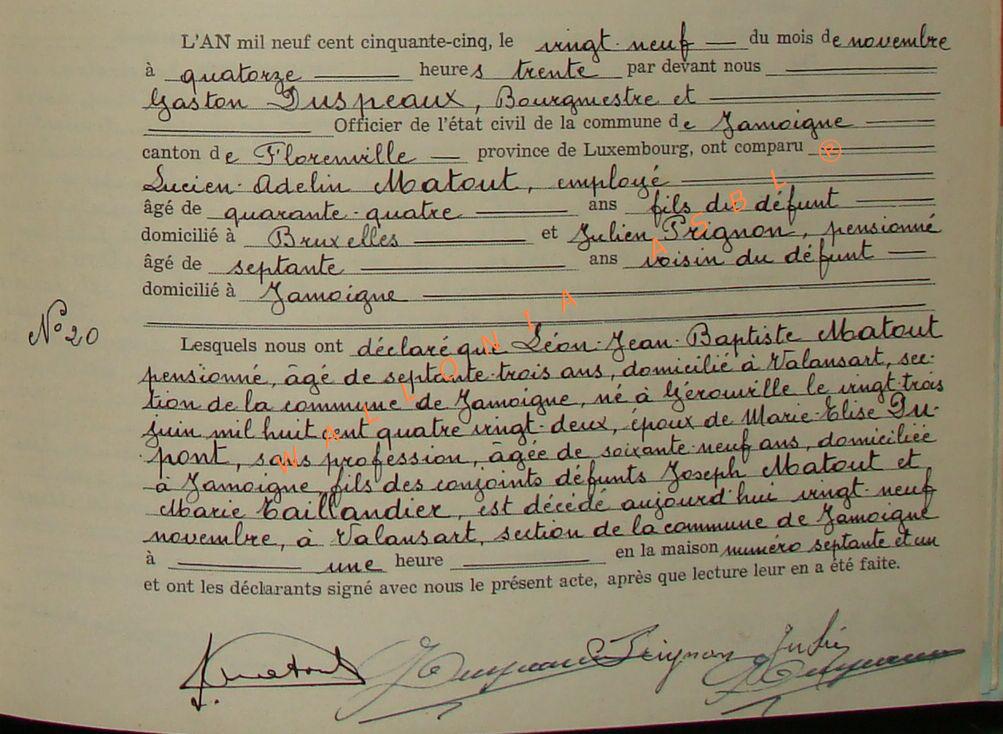 L'AN mil neuf cent cinquante-cinq, le vingt-neuf du mois de novembre
à quatorze heures trente par devant nous
Gaston Duspeaux, Bourgmestre et
Officier de l'état civil de la commune de Jamoigne
canton de Florenville province de Luxembourg, ont comparu
Lucien-Adelin Matout, employé
âgé de quarante-quatre ans fils du défunt
domicilié à Bruxelles et Julien Prignon, pensionné
âgé de septante ans voisin du défunt
domicilié à Jamoigne
N° 20
Lesquels nous ont déclaré que Léon-Jean-Baptiste Matout
pensionné, âgé de septante-trois ans, domicilié à Valansart, sec-
tion de la commune de Jamoigne, né à Gérouville le vingt-trois
juin mil huit cent quatre vingt-deux, époux de Marie-Elise Du-
pont, sans profession, âgée de soixante-neuf ans, domiciliée
à Jamoigne, fils des conjoints défunts Joseph Matout et
Marie Taillandier, est décédé aujourd'hui vingt-neuf
novembre, à Valansart, section de la commune de Jamoigne
à une heure en la maison numéro septante et un
et ont les déclarants signé avec nous le présent acte, après que lecture leur en a été faite.
Prignon
WALLONIA ASBL ®